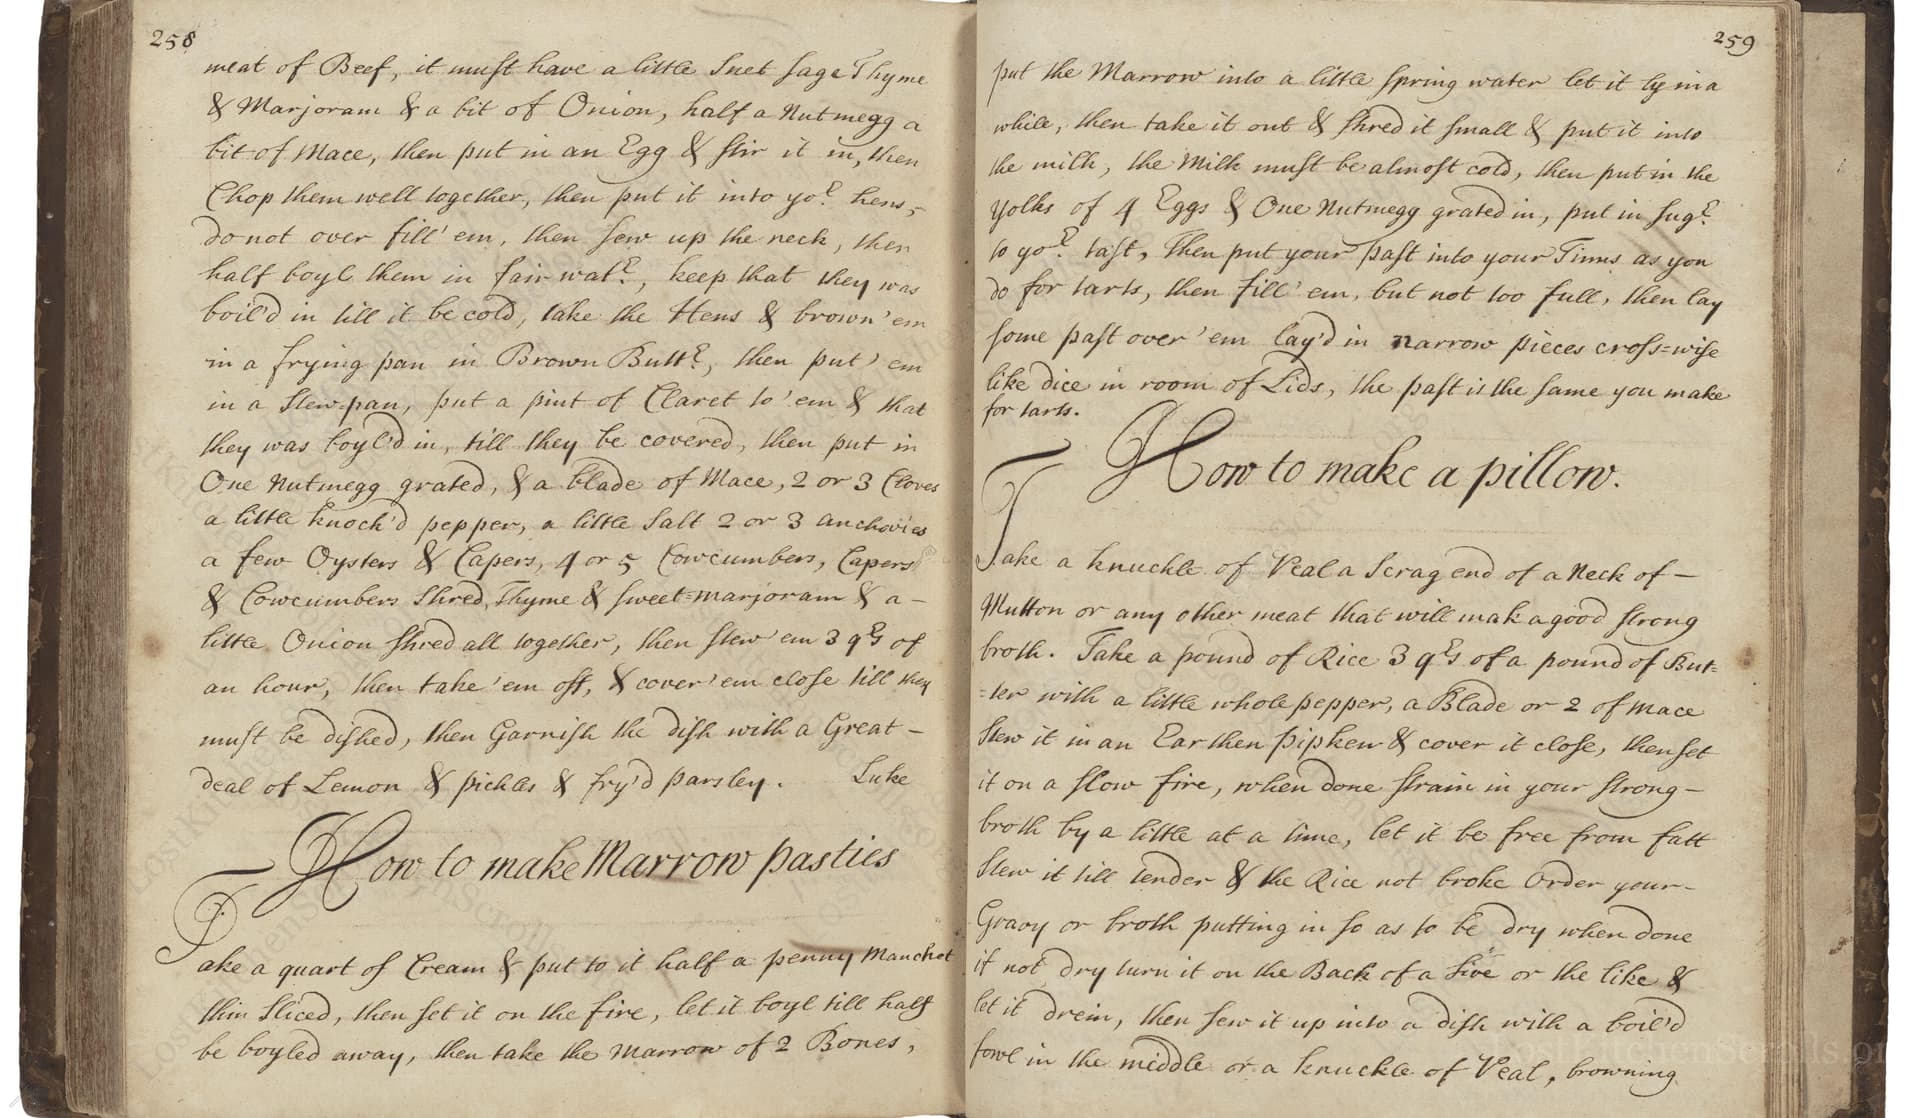 258
meat of Beef, it must have a little Suet sage Thyme
& Marjoram & a bit of Onion, half a Nutmegg a
bit of Mace, then put in an Egg & stir it in, then
Chop them well together, then put it into yor. hens,
do not over fill 'em, then sew up the neck, then
half boyl them in fair watr., keep that they was
boil'd in till it be cold, take the Hens & brown 'em
in a frying pan in Brown Buttr., then put 'em
in a Stew=pan, put a pint of Claret to 'em & that
they was boyl'd in, till they be covered, then put in
One Nutmegg grated, & a blade of Mace, 2 or 3 Cloves
a little knock'd pepper, a little Salt 2 or 3 anchovies
a few Oysters & Capers, 4 or 5 Cowcumbers, Capers
& Cowcumbers Shred, Thyme & sweet=marjoram & a-
little Onion shred all together, then stew 'em 3 qrs of
an hour, then take 'em off, & cover 'em close till they
must be dished, then Garnish the dish with a Great-
deal of Lemon & pickles & fry'd parsley. Luke
How to make Marrow pasties
Take a quart of Cream & put to it half a penny Manchet
thin Sliced, then set it on the fire, let it boyl till half
be boyled away, then take the Marrow of 2 Bones,
259
put the Marrow into a little spring water let it ly in a
while, then take it out & shred it small & put it into
the milk, the Milk must be almost cold, then put in the
yolks of 4 Eggs & One Nutmegg grated in, put in sugr.
to yor. tast, Then put your past into your Tinns as you
do for tarts, then fill 'em, but not too full, then lay
some past over 'em lay'd in narrow pieces cross=wise
like dice in room of Lids, the past is the same you make
for tarts.
How to make a pillow.
Take a knuckle of Veal a Scrag end of a Neck of-
Mutton or any other meat that will mak a good strong
broth. Take a pound of Rice 3 qrs of a pound of But=
=ter with a little whole pepper, a Blade or 2 of Mace
Stew it in an Earthen pipken & cover it close, then set
it on a slow fire, when done strain in your strong-
broth by a little at a time, let it be free from fatt
Stew it till tender & the Rice not broke Order your-
Gravy or broth putting in so as to be dry when done
if not dry turn it on the Back of a Sive or the like &
let it drein, then sew it up into a dish with a boil'd
fowl in the middle or a knuckle of Veal, browning